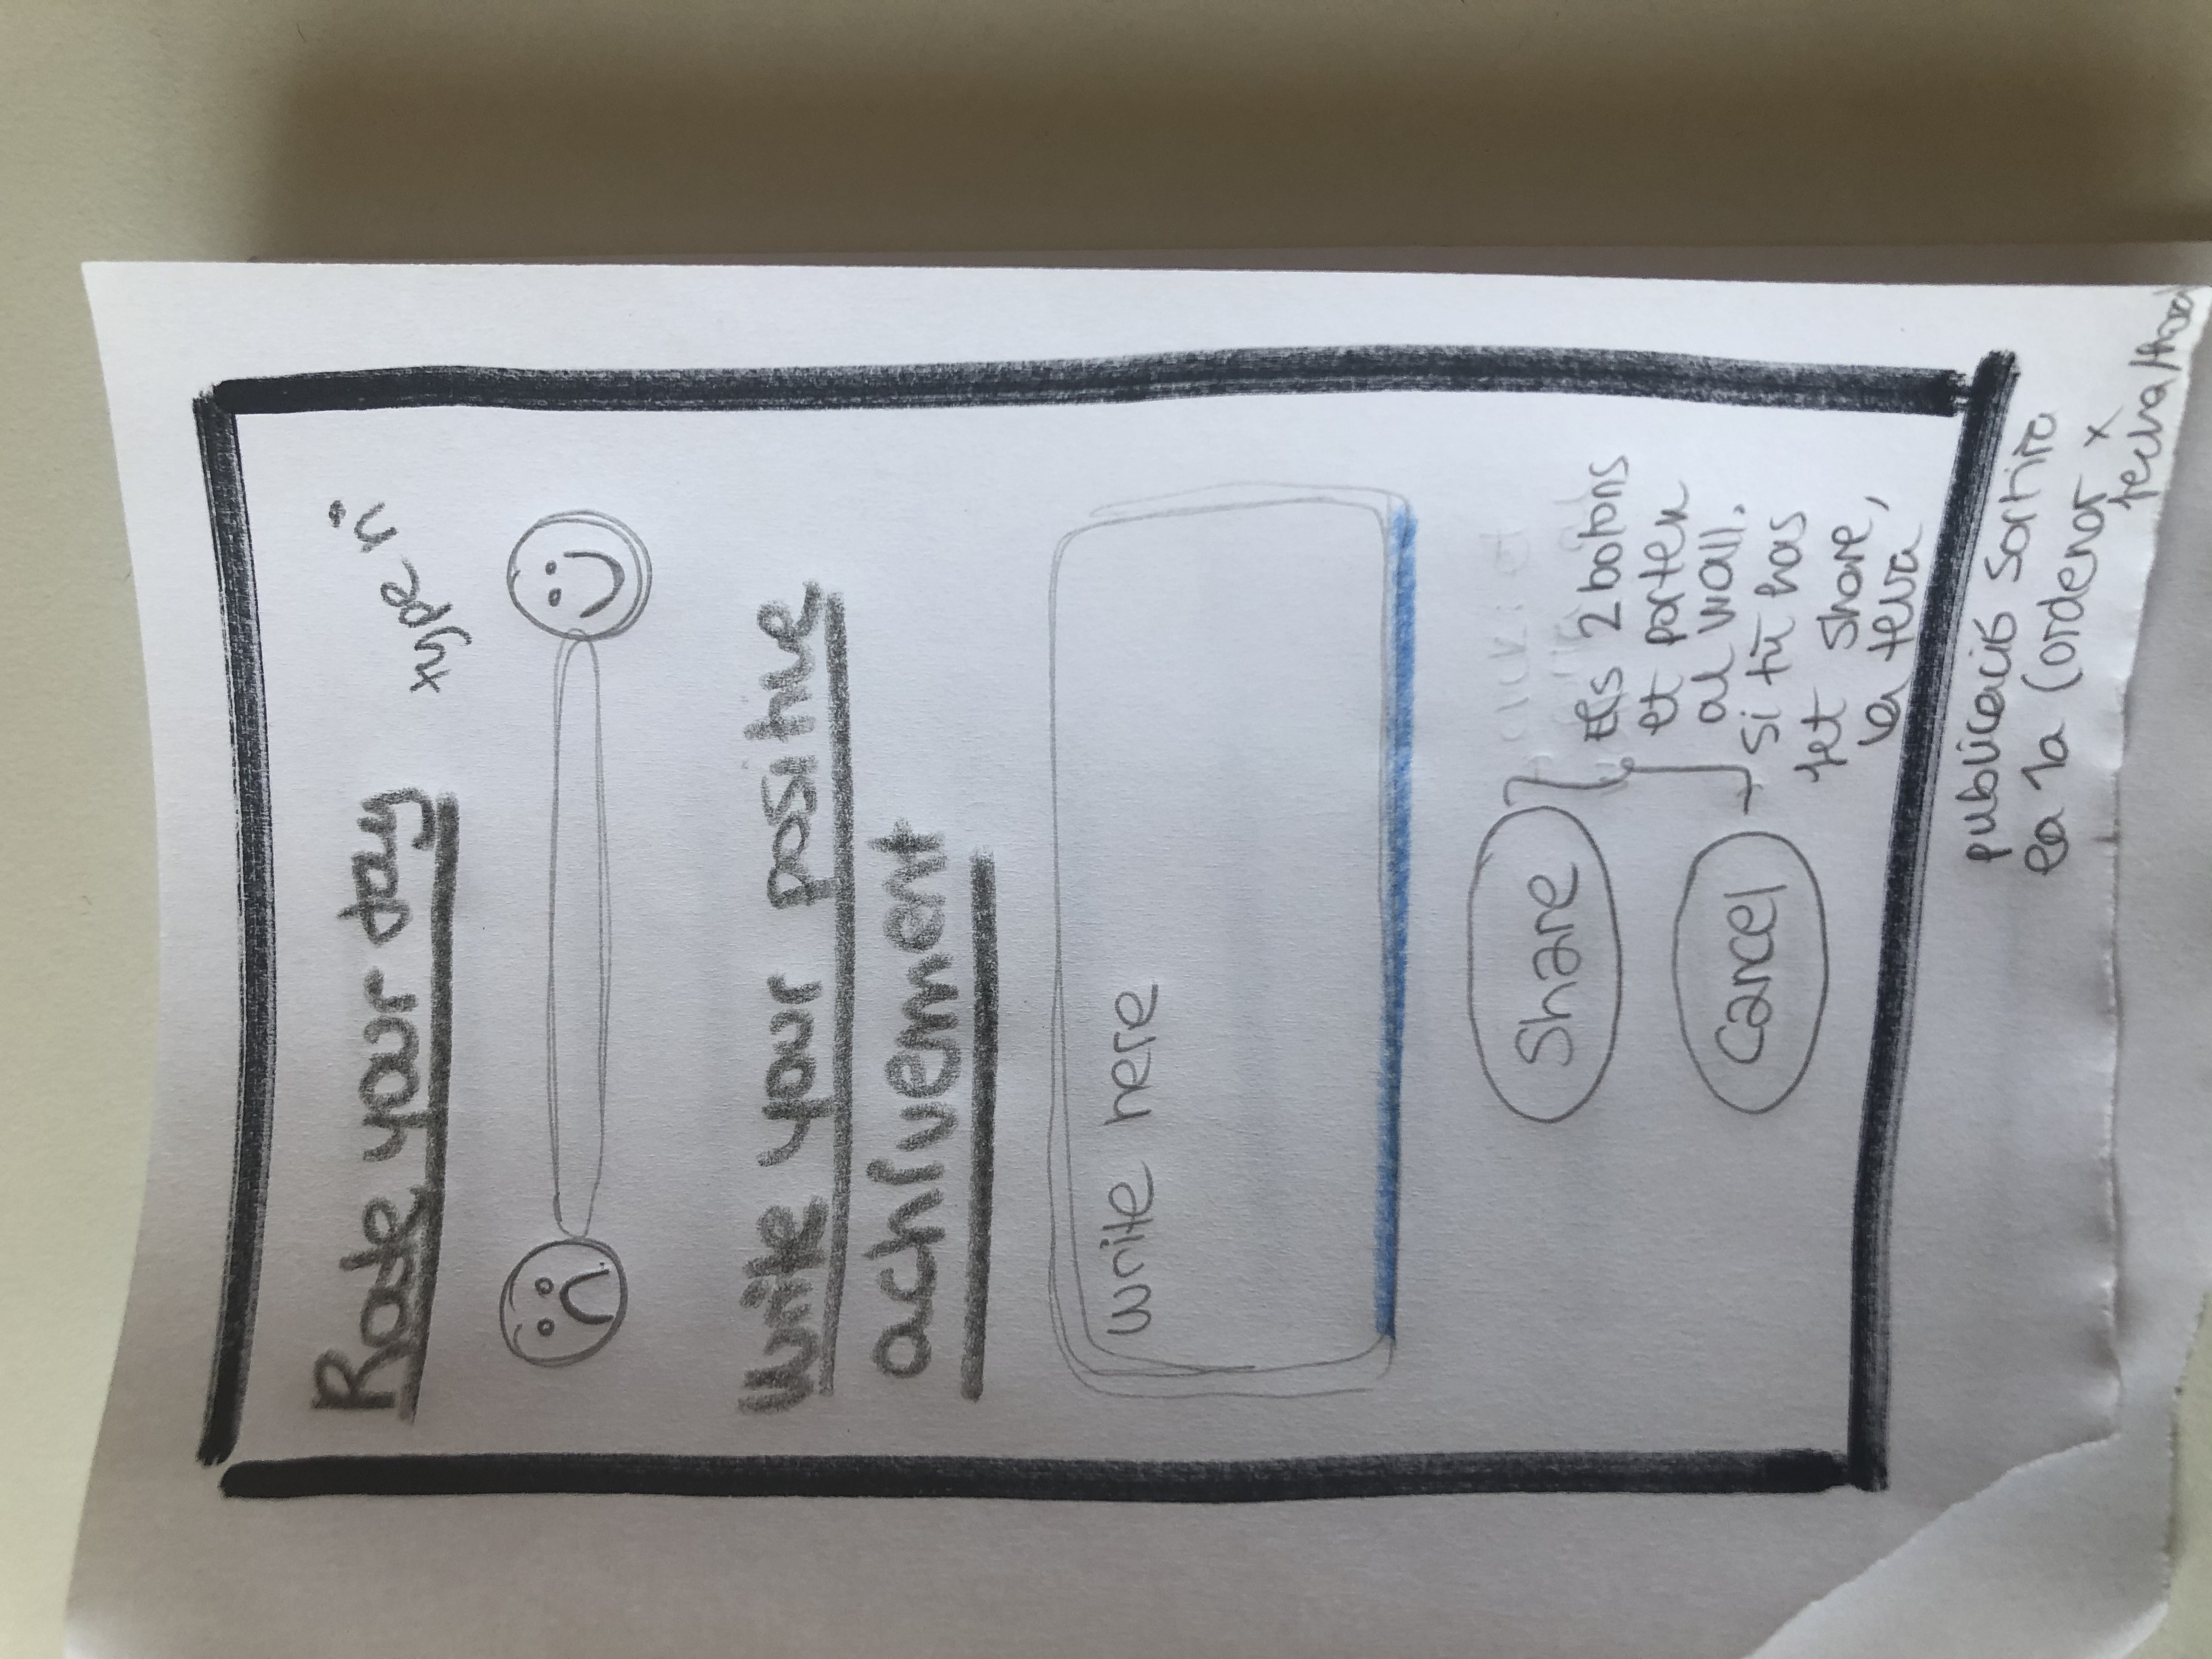 Rate your day
type nº
Write your positive
achivement
write here
Share
Els 2 botons
et porten
al wall.
Cancel
Si tú has
fet share,
la teva
publicació sortira
la 1a (ordenar x
fecha/hora